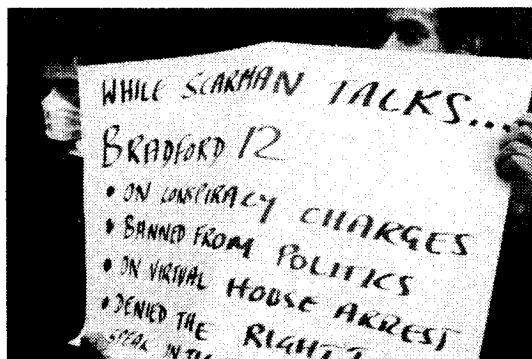 WHILE SCARMAN TALKS....
BRADFORD 12
• ON CONSPIRACY CHARGES
• BANNED FROM POLITICS
• ON VIRTUAL HOUSE ARREST
• DENIED THE RIGHT
SPEAK IN